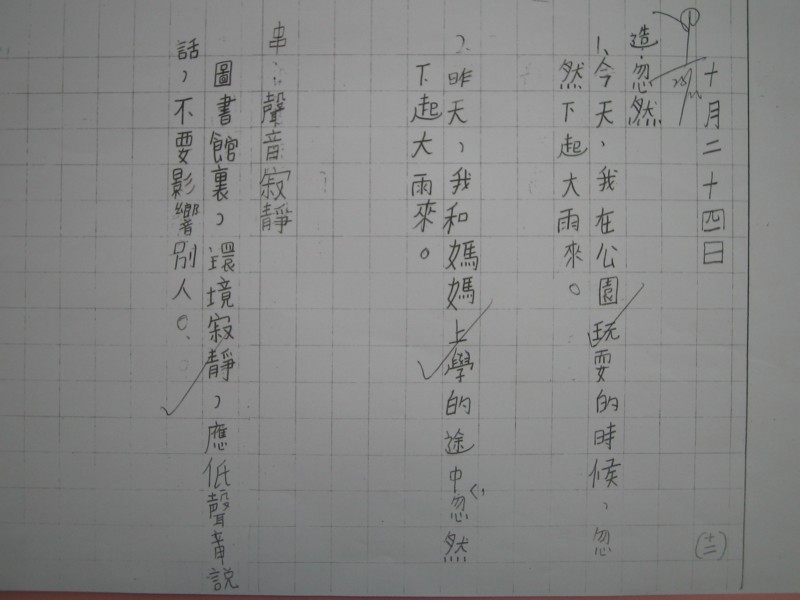 十月二十四日
造:忽然
1.今天，我在公園玩耍的時候，忽
然下起大雨來。
2.昨天，我和媽媽上學的途中，忽然
下起大雨來。
串:聲音寂靜
圖書館裏，環境寂靜，應低聲音說
話，不要影響別人。
(十二)